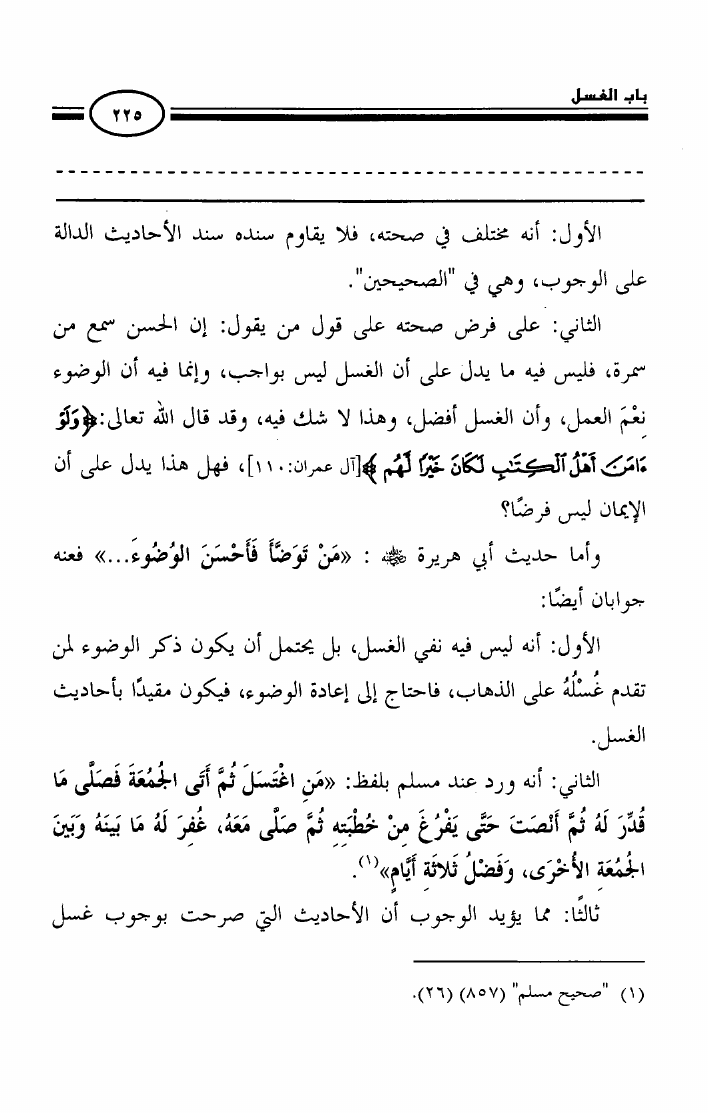 باب الغسل
٢٢٥
الأول: أنه مختلف في صحته، فلا يقاوم سنده سند الأحاديث الدالة
على الوجوب، وهي في "الصحيحين".
الثاني: على فرض صحته على قول من يقول: إن الحسن سمع من
سمرة، فليس فيه ما يدل على أن الغسل ليس بواجب، وإنما فيه أن الوضوء
نِعْمَ العمل، وأن الغسل أفضل، وهذا لا شك فيه، وقد قال الله تعالى:﴿وَلَوْ
ءَامَنَ أَهْلُ ٱلْكِتَٰبِ لَكَانَ خَيْرًا لَّهُم﴾[آل عمران:١١٠]، فهل هذا يدل على أن
الإيمان ليس فرضًا؟
وأما حديث أبي هريرة ﷺ : «مَنْ تَوَضَّأَ فَأَحْسَنَ الوُضُوءَ...» فعنه
جوابان أيضًا:
الأول: أنه ليس فيه نفي الغسل، بل يحتمل أن يكون ذكر الوضوء لمن
تقدم غُسْلُهُ على الذهاب، فاحتاج إلى إعادة الوضوء، فيكون مقيدًا بأحاديث
الغسل.
الثاني: أنه ورد عند مسلم بلفظ: «مَنِ اغْتَسَلَ ثُمَّ أَتَى الجُمُعَةَ فَصَلَّى مَا
قُدِّرَ لَهُ ثُمَّ أَنْصَتَ حَتَّى يَفْرُغَ مِنْ خُطْبَتِهِ ثُمَّ صَلَّى مَعَهُ، غُفِرَ لَهُ مَا بَينَهُ وَبَينَ
الجُمُعَةِ الأُخْرَى، وَفَضْلُ ثَلاثَةِ أَيَّامٍ»(١).
ثالثًا: مما يؤيد الوجوب أن الأحاديث التي صرحت بوجوب غسل
(١) "صحيح مسلم" (٨٥٧) (٢٦).